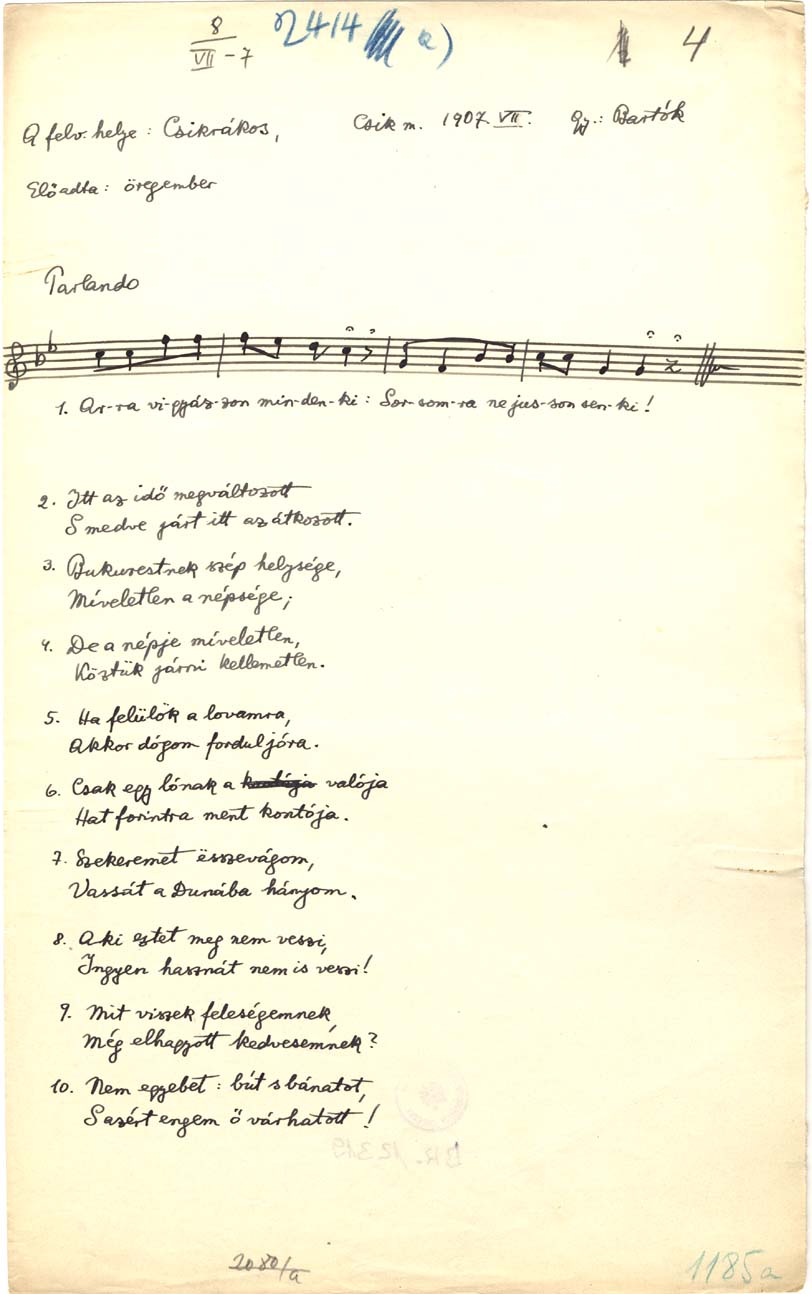 8
VII-7
2414 a)
4
A felv. helye: Csikrákos, Csik m. 1907. VII. Gy.: Bartók
Előadta: öregember
Parlando
1. Ar-ra vi-gyáz-zon min-den-ki: Sor-som-ra ne jus-son sen-ki!
2. Itt az idő megváltozott
S medve járt itt az átkozott.
3. Bukurestnek szép helysége,
Míveletlen a népsége;
4. De a népje míveletlen,
Köztük járni kellemetlen.
5. Ha felülök a lovamra,
Akkor dógom fordul jóra.
6. Csak egy lónak a valója
Hat forintra ment kontója.
7. Szekeremet ësszevágom,
Vassát a Dunába hányom.
8. Aki eztet meg nem veszi,
Ingyen hasznát nem is veszi!
9. Mit viszek feleségemnek,
Még elhagyott kedvesemnek?
10. Nem egyebet: bút s bánatot,
S azért engem ő várhatott!
BR. 12319
2080/a
1185a